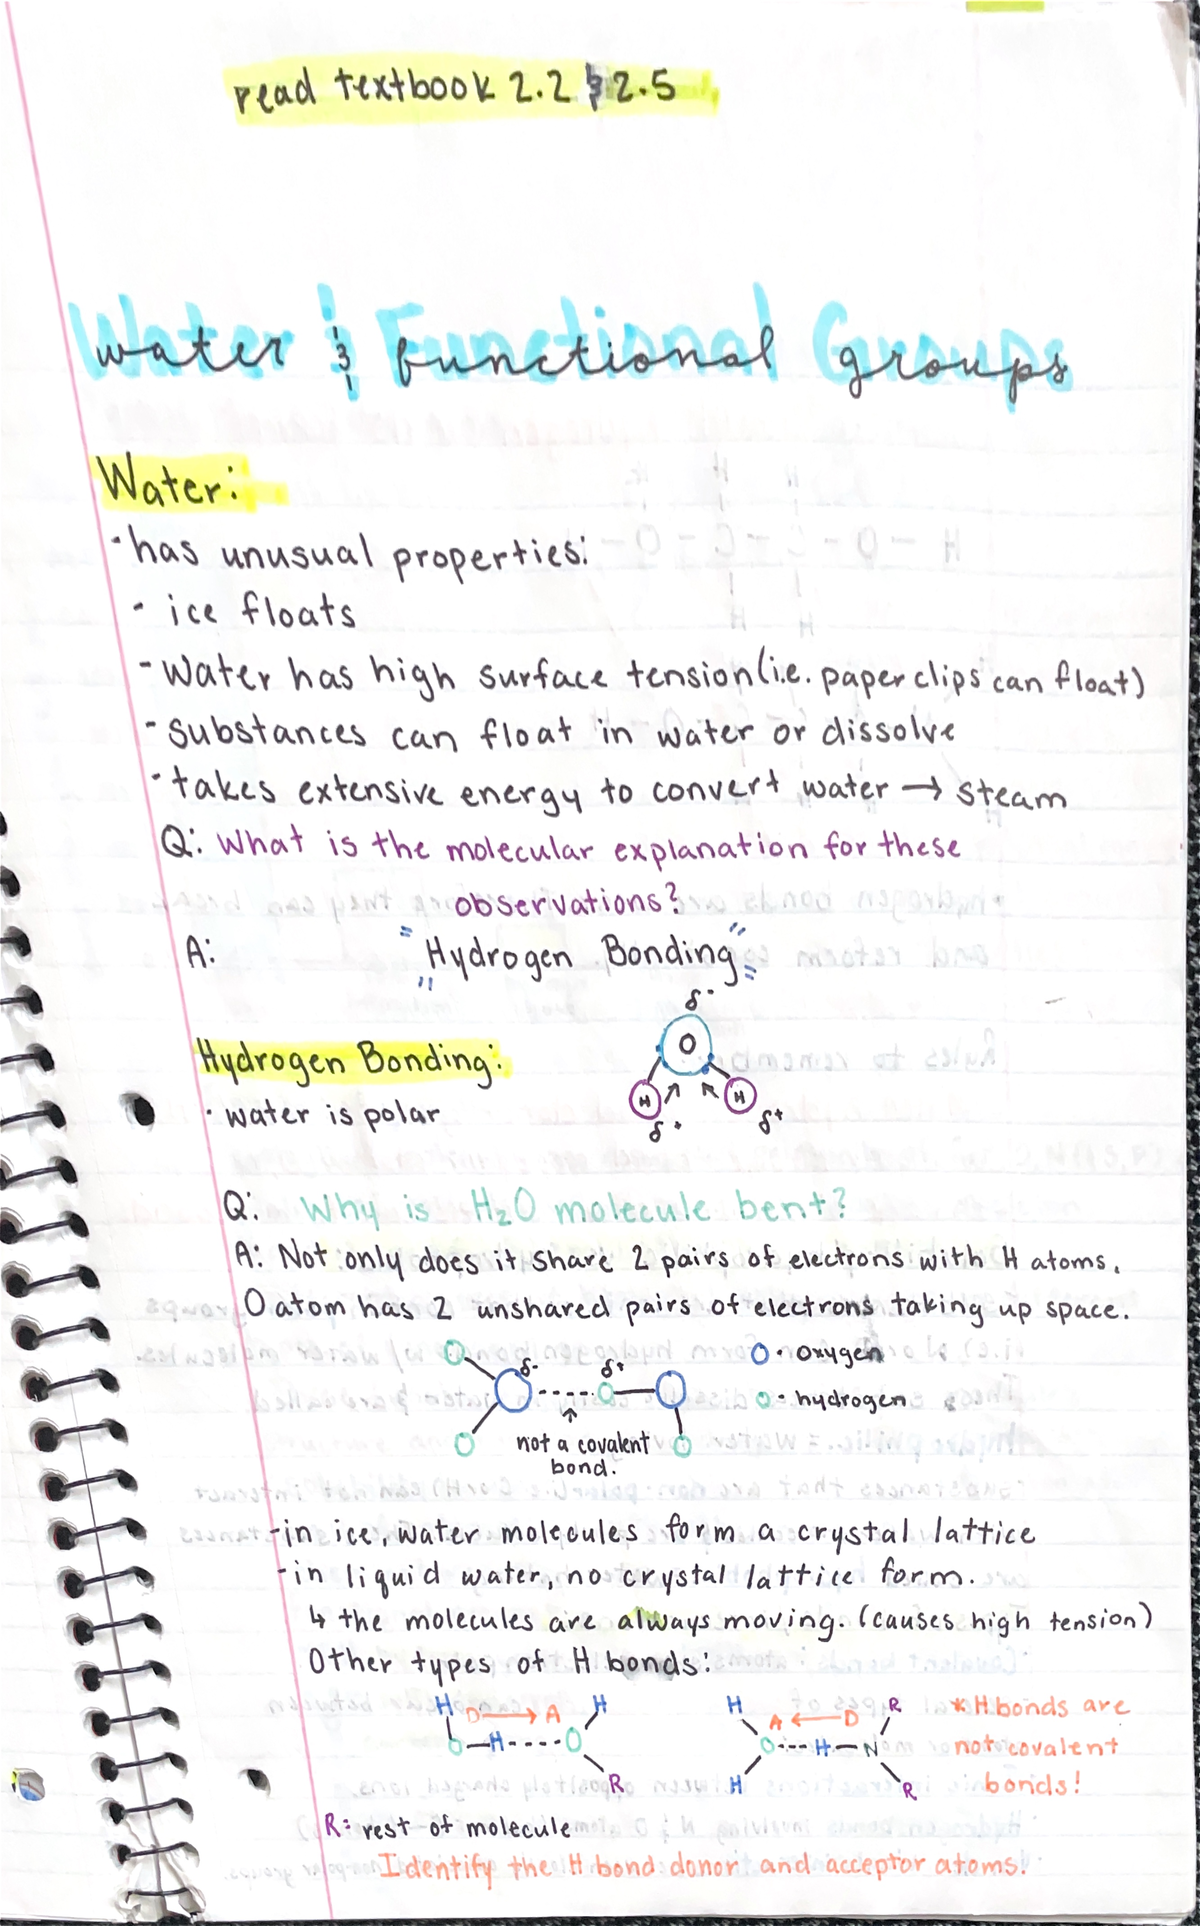 read textbook 2.2 & 2.5
Water & Functional Groups
Water:
· has unusual properties:
- ice floats
- Water has high surface tension (i.e. paper clips can float)
- Substances can float in water or dissolve
- takes extensive energy to convert water → steam
Q: What is the molecular explanation for these
observations?
A: "Hydrogen Bonding"
δ-
O
H H
δ+ δ+
Hydrogen Bonding:
· water is polar
Q: Why is H₂O molecule bent?
A: Not only does it share 2 pairs of electrons with H atoms,
O atom has 2 unshared pairs of electrons taking up space.
δ- δ+
O - oxygen
o - hydrogen
not a covalent
bond.
- in ice, water molecules form a crystal lattice
- in liquid water, no crystal lattice form.
↳ the molecules are always moving. (causes high tension)
Other types of H bonds:
H D → A H
O—H----O
R
H A ← D R
O---H—N
H R
* H bonds are
not covalent
bonds!
R: rest of molecule
Identify the H bond donor and acceptor atoms!